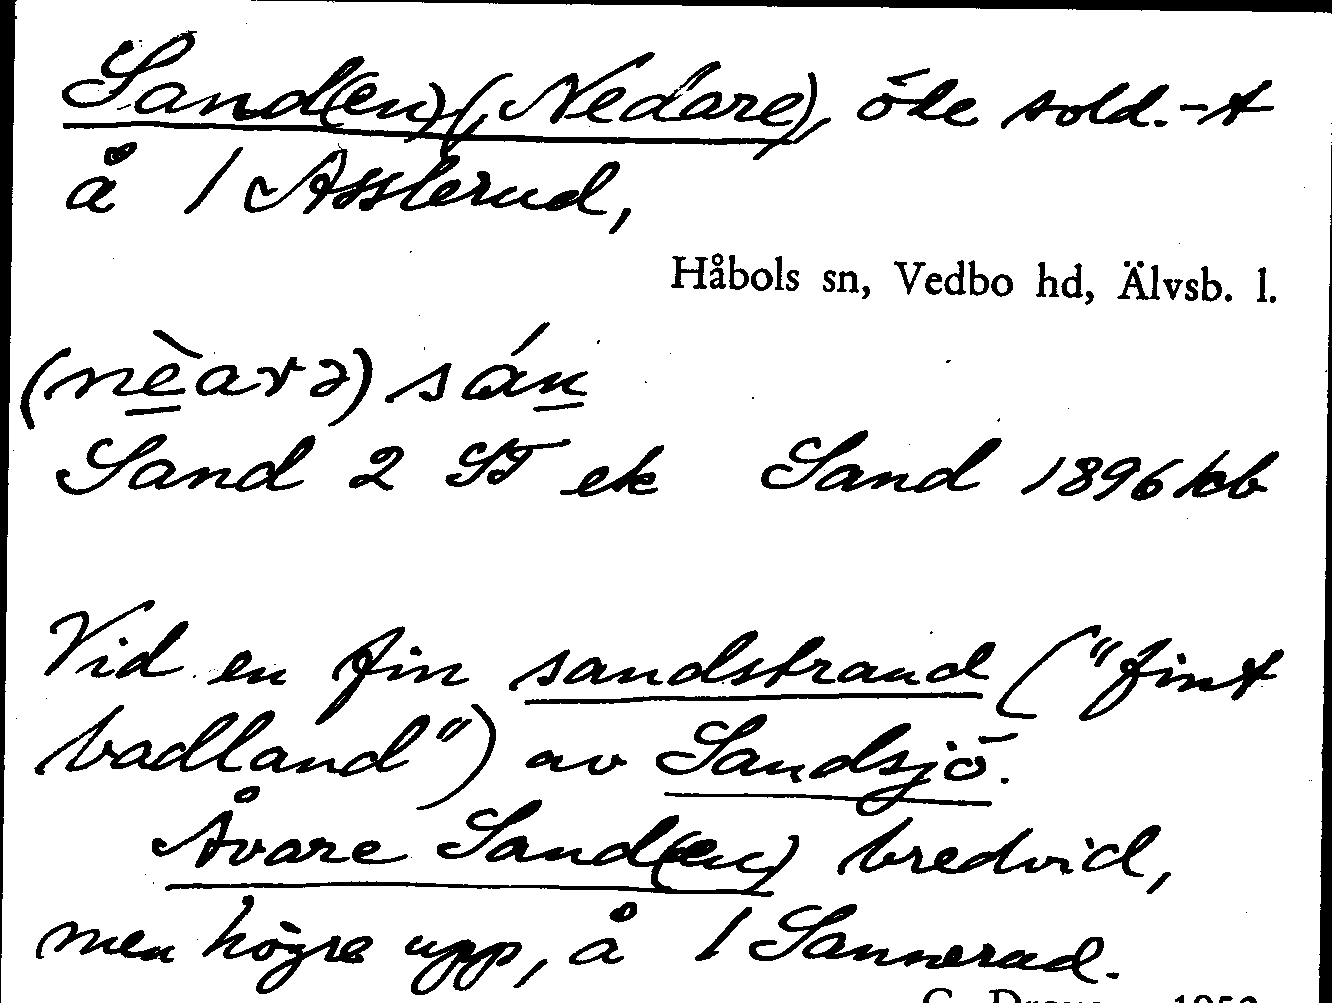 Sand(en)(, Nedare), öde sold.-t
å 1 Asslerud,
Håbols sn, Vedbo hd, Älvsb. l.
(nèarə) sán
Sand 2 ST ek Sand 1896 kb
Vid en fin sandstrand ("fint
badland") av Sandsjö.
Åvare Sand(en) bredvid,
men högre upp, å 1 Sannerud.